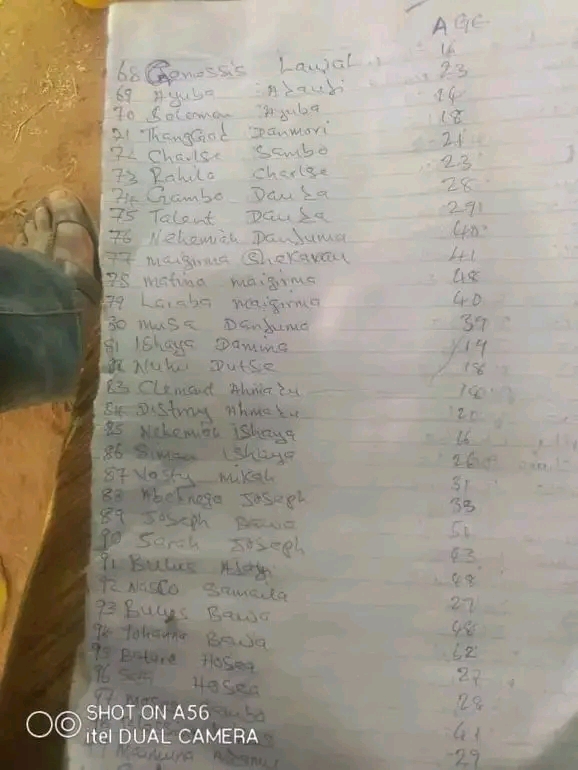 AGE
68 Genossis Lawjal 16
69 Ayuba 23
70 Solomon Ayuba 14
71 ThangGod Danmori 18
72 Charlse Sambo 21
73 Rahila Charlse 23
74 Gambo Dauda 28
75 Talent Dauda 29
76 Nehemiah Danjuma 40
77 maigirma Shekarau 41
78 matina maigirma 48
79 Laraba maigirma 40
80 musa Danjuma 39
81 IShaya Damina 19
82 Nuhu Dutse 18
83 Clement Ahmadu 18
84 DiStiny Ahmadu 20
85 Nehemiah iShaya 16
86 Simon iShaya 26
87 Vosty mikah 31
88 Abeknego JoSeph 33
89 JoSeph Bawa 51
90 Sarah JoSeph 43
91 Bulus 48
92 NaSCo Samaila 27
93 Bulus Bawa 48
94 Yohanna Bawa 62
95 Bature HoSea 27
96 HoSea 28
97 41
29
SHOT ON A56
itel DUAL CAMERA